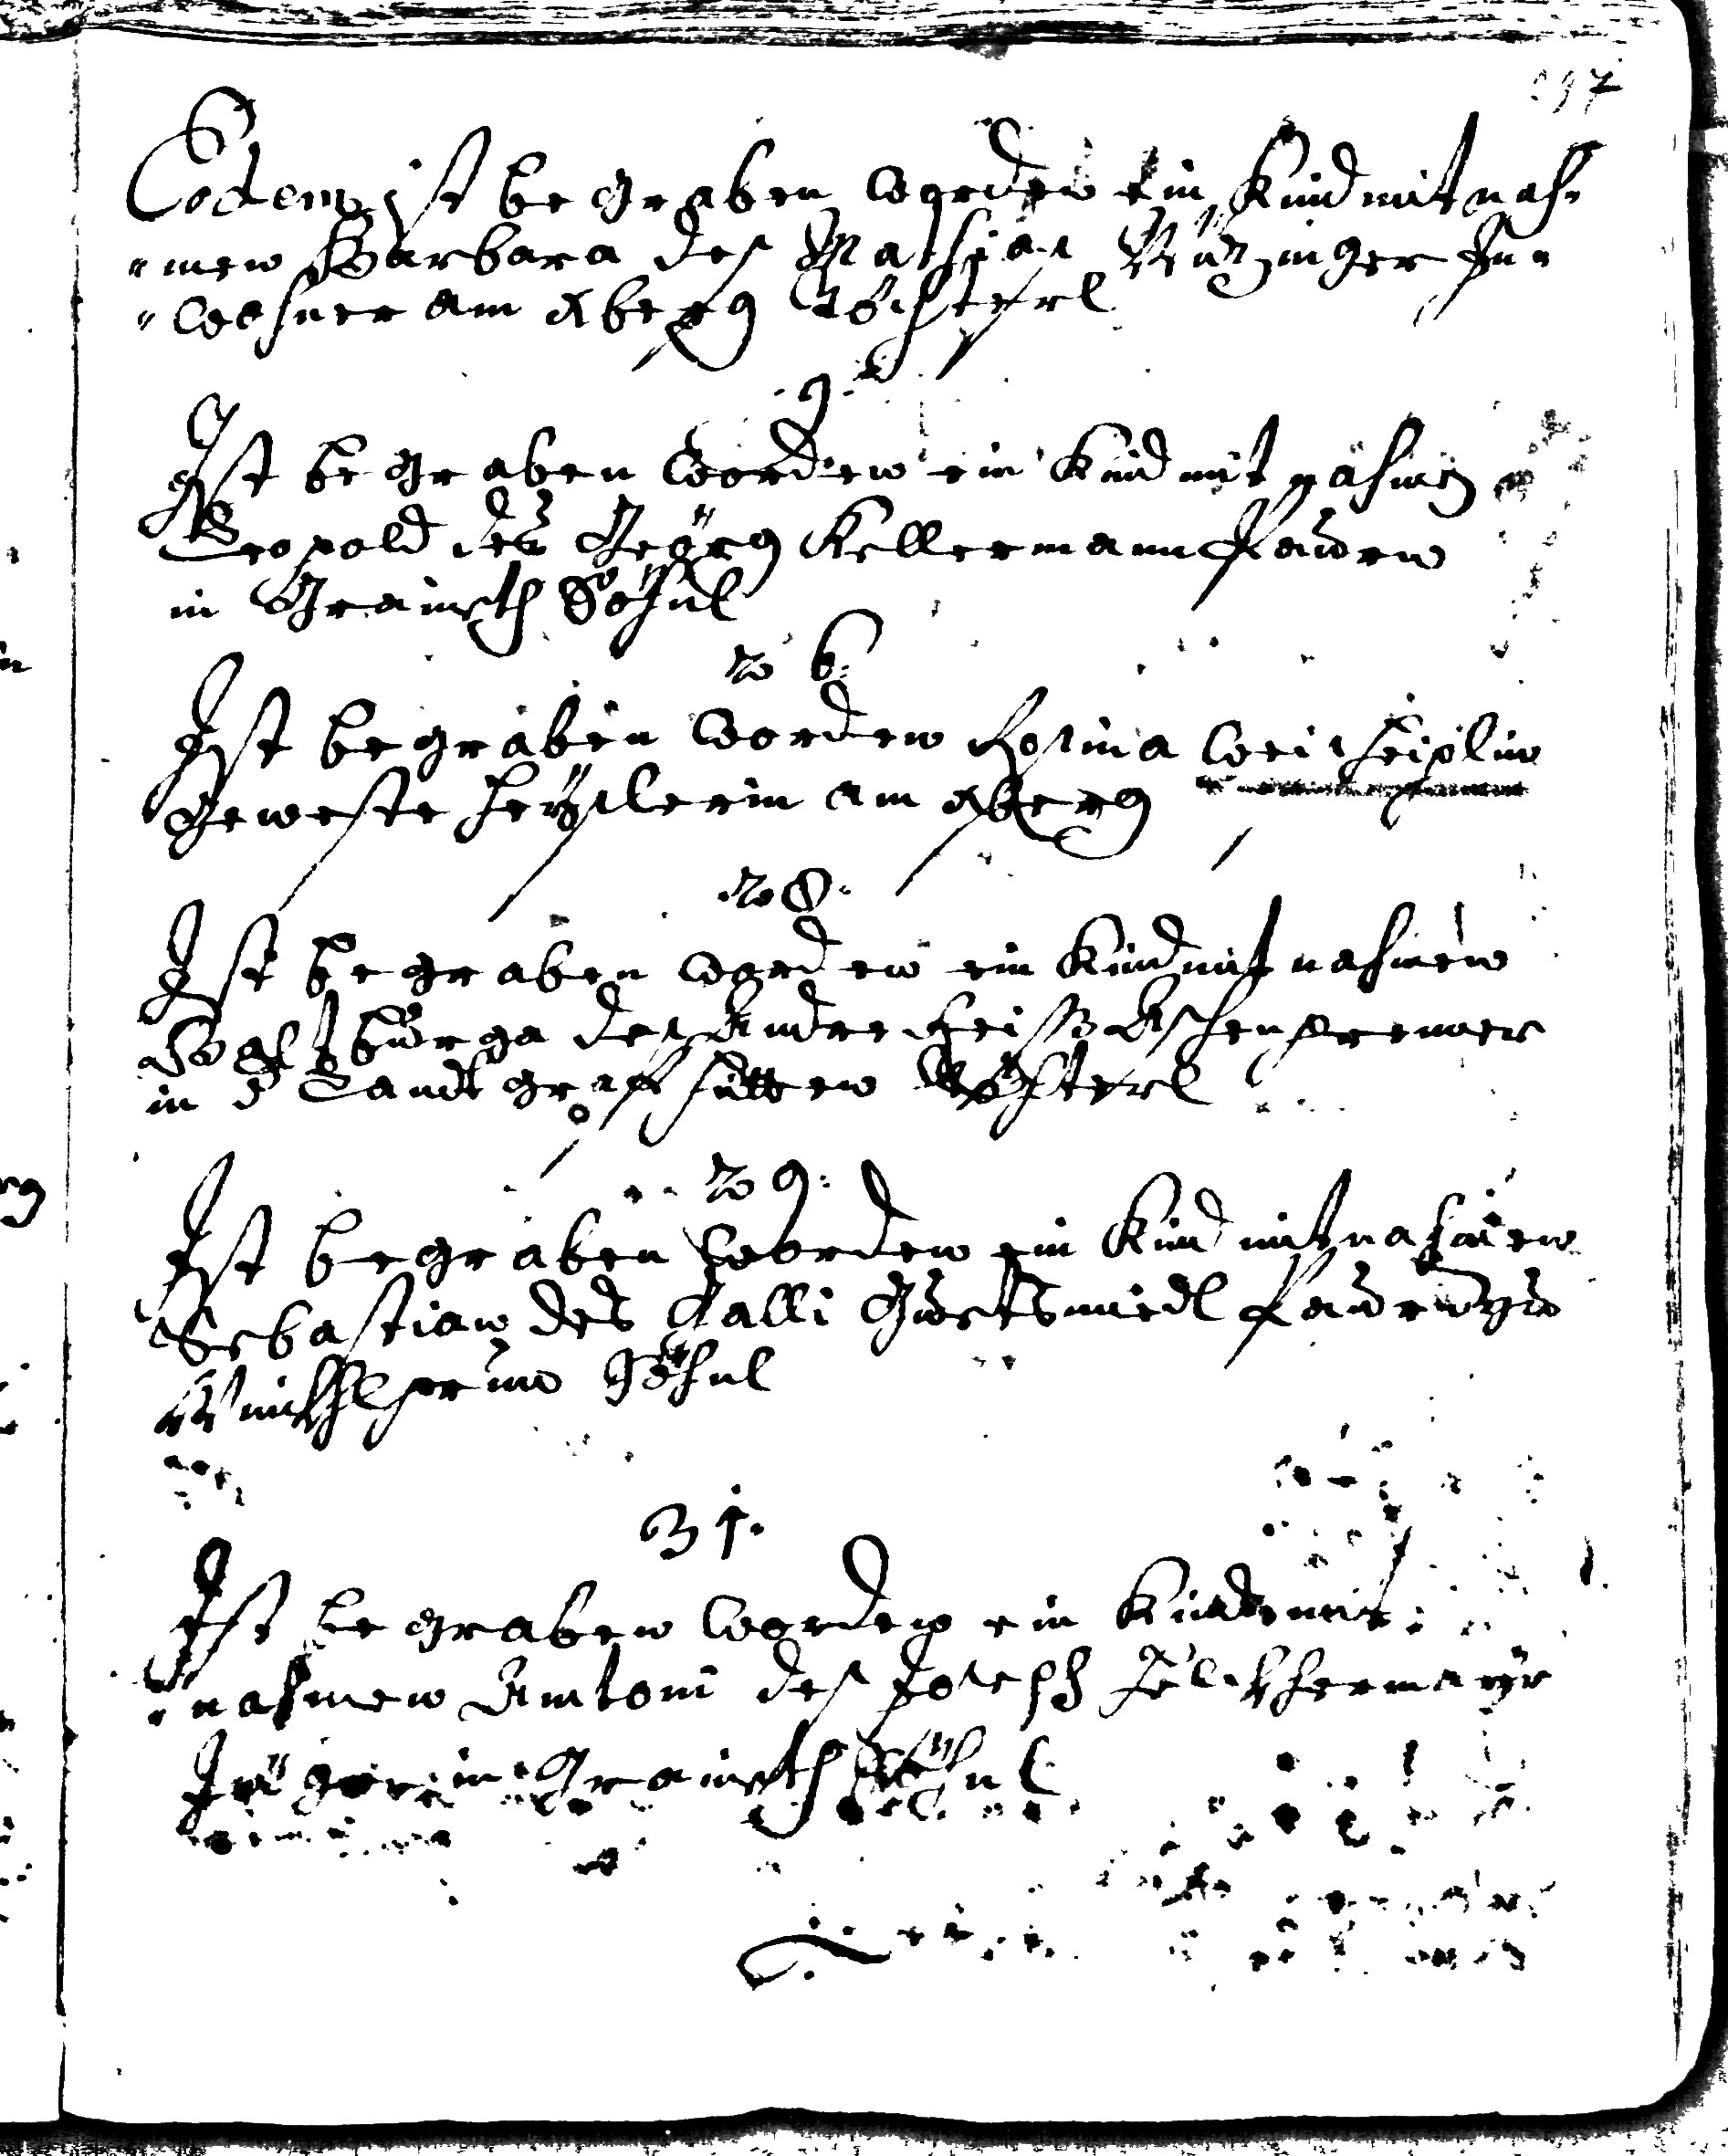 Eodem ist begraben worden ein Kind mit nah=
=men Barbara des Mathias Inn=
=wohner am Aberg Töchterl
9.
Ist begraben worden ein Kind mit nahmen
Leopold des Geörg Kellermann Paurn
in Graineth Söhnl
26.
Ist begraben worden Rosina
geweste heÿslerin am Aberg
28.
Ist begraben worden ein Kind mit nahmen
Walburga des Andre Aschenprenner
in d Landtgraffhütten Töchterl
29.
Ist begraben worden ein Kind mit nahmen
Sebastian des Galli Paurn zu
Söhnl
31.
Ist begraben worden ein Kind mit
nahmen Antoni des Joseph
Jäger in Graineth Söhnl